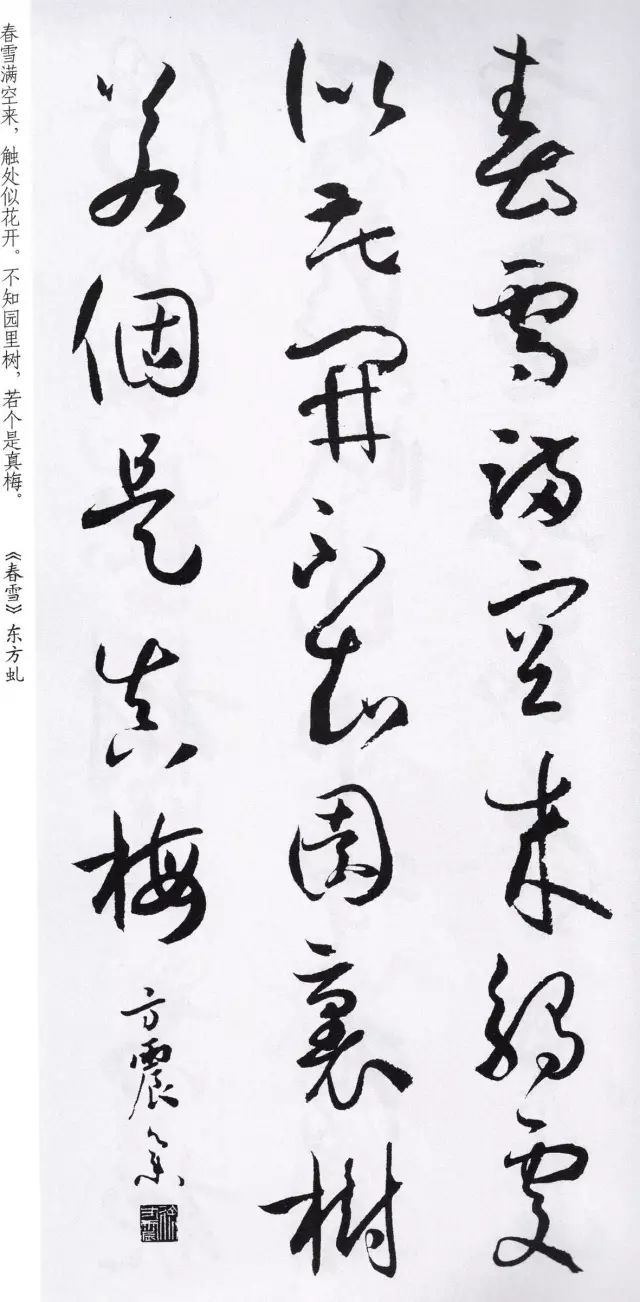 春雪满空来觸处
似花開不知園裏樹
若個是真梅
方震拿
春雪满空来，触处似花开。不知园里树，若个是真梅。
《春雪》东方虬